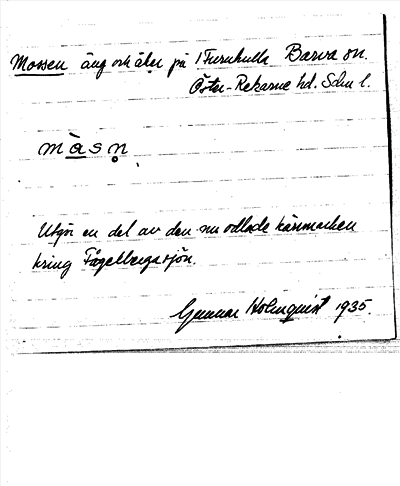 Mossen äng och åker på 1 Furuhulta Barva sn.
Öster-Rekarne hd. Sdm l.
màsn̥
Utgör en del av den nu odlade kärrmarken
kring Fågelbergasjön.
Gunnar Holmquist 1935.